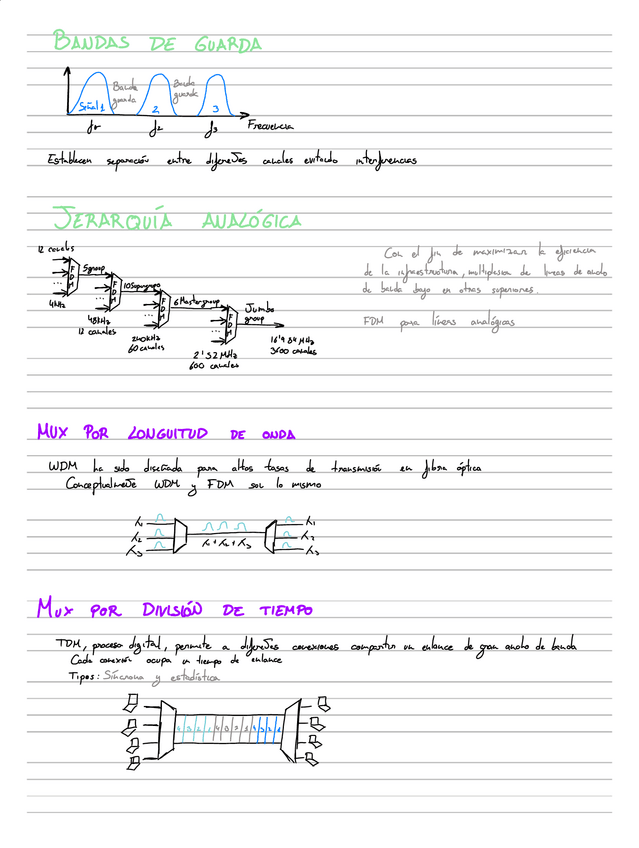 BANDAS DE GUARDA
Banda guarda
Banda guarda
Señal 1
2
3
f1
f2
f3
Frecuencia
Establecen separación entre diferentes canales evitando interferencias
JERARQUÍA ANALÓGICA
12 canales
4kHz
FDM
5group
48kHz
12 canales
FDM
10Supergroupo
240kHz
60canales
FDM
6Mastergroup
2'52MHz
600 canales
FDM
Jumbo
group
16'984MHz
3600 canales
Con el fin de maximizar la eficiencia
de la infraestructura, multiplexion de lineas de ancho
de banda bajo en otras superiores.
FDM para líneas analógicas
MUX POR LONGUITUD DE ONDA
WDM ha sido diseñada para altas tasas de transmisión en fibra óptica
Conceptualmente WDM y FDM son lo mismo
λ1
λ2
λ3
λ1+λ2+λ3
λ1
λ2
λ3
MUX POR DIVISIÓN DE TIEMPO
TDM, proceso digital, permite a diferentes conexiones compartir un enlance de gran ancho de banda
Cada conexión ocupa un tiempo de enlance
Tipos: Síncrona y estadística
4 3 2 1 4 3 2 1 4 3 2 1